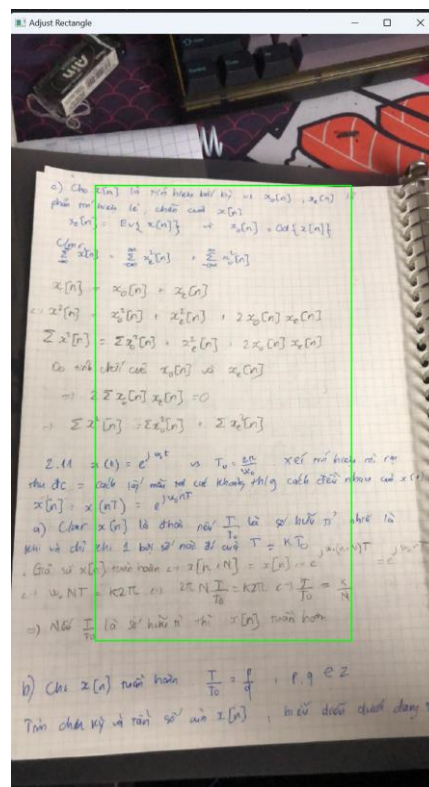 Adjust Rectangle
c) Cho x[n] là tín hiệu bất kỳ và x₀[n], xₑ[n] là
phần tín hiệu lẻ, chẵn của x[n]
xₑ[n] = Ev{x[n]} → x₀[n] = Od{x[n]}
x²[n] = Σ xₑ²[n] + Σ x₀²[n]
x[n] = x₀[n] + xₑ[n]
x²[n] = x₀²[n] + xₑ²[n] + 2x₀[n]xₑ[n]
Σx²[n] = Σx₀²[n] + xₑ²[n] + 2x₀[n]xₑ[n]
Do tính chất của x₀[n] và xₑ[n]
⇒ 2Σx₀[n]xₑ[n] = 0
→ Σx²[n] = Σx₀²[n] + Σxₑ²[n]
2.11 x(t) = e^{jω₀t} T₀ = 2π/ω₀ xét tín hiệu rời rạc
thu đc = cách lấy mẫu với các khoảng th/g cách đều nhau của x(t)
x[n] = x(nT) = e^{jω₀nT}
a) x[n] là tuần hoàn nếu T/T₀ là số hữu tỉ nghĩa là
khi và chỉ khi 1 bội số nào đó của T = kT₀
Giả sử x[n] tuần hoàn ↔ x[n+N] = x[n]
ω₀NT = K2π ↔ 2πN T/T₀ = K2π ↔ T/T₀ = K/N
⇒ Nếu T/T₀ là số hữu tỉ thì x[n] tuần hoàn
b) Cho x[n] tuần hoàn T/T₀ = p/q, p,q ∈ Z
Tính chu kỳ và tần số của x[n], biểu diễn dưới dạng